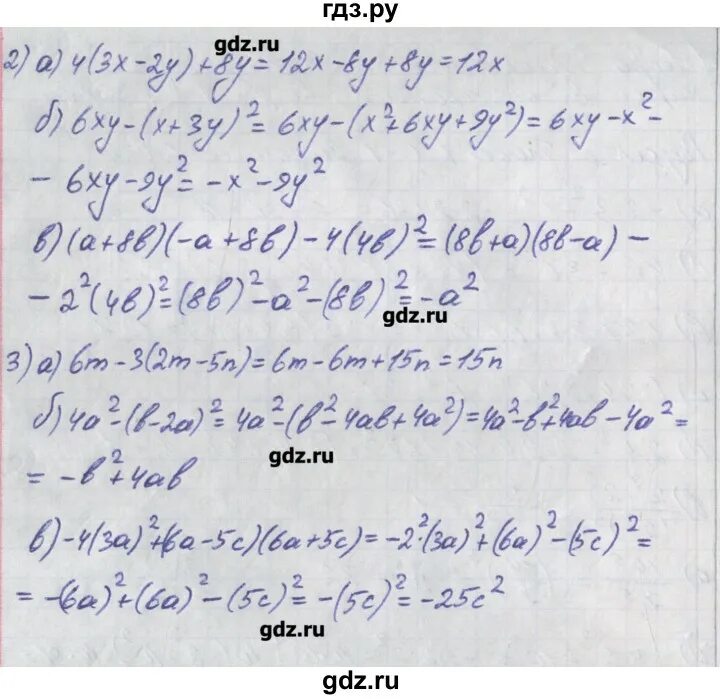 гдз.ру
gdz.ru
2) а) 4(3x-2y)+8y=12x-8y+8y=12x
б) 6xy-(x+3y)²=6xy-(x²+6xy+9y²)=6xy-x²-
-6xy-9y²=-x²-9y²
в) (a+8b)(-a+8b)-4(4b)²=(8b+a)(8b-a)-
-2²(4b)²=(8b)²-a²-(8b)²=-a²
gdz.ru
3) а) 6m-3(2m-5n)=6m-6m+15n=15n
б) 4a²-(b-2a)²=4a²-(b²-4ab+4a²)=4a²-b²+4ab-4a²=
=-b²+4ab
gdz.ru
в) -4(3a)²+(6a-5c)(6a+5c)=-2²·(3a)²+(6a)²-(5c)²=
=-(6a)²+(6a)²-(5c)²=-(5c)²=-25c²
gdz.ru
gdz.ru